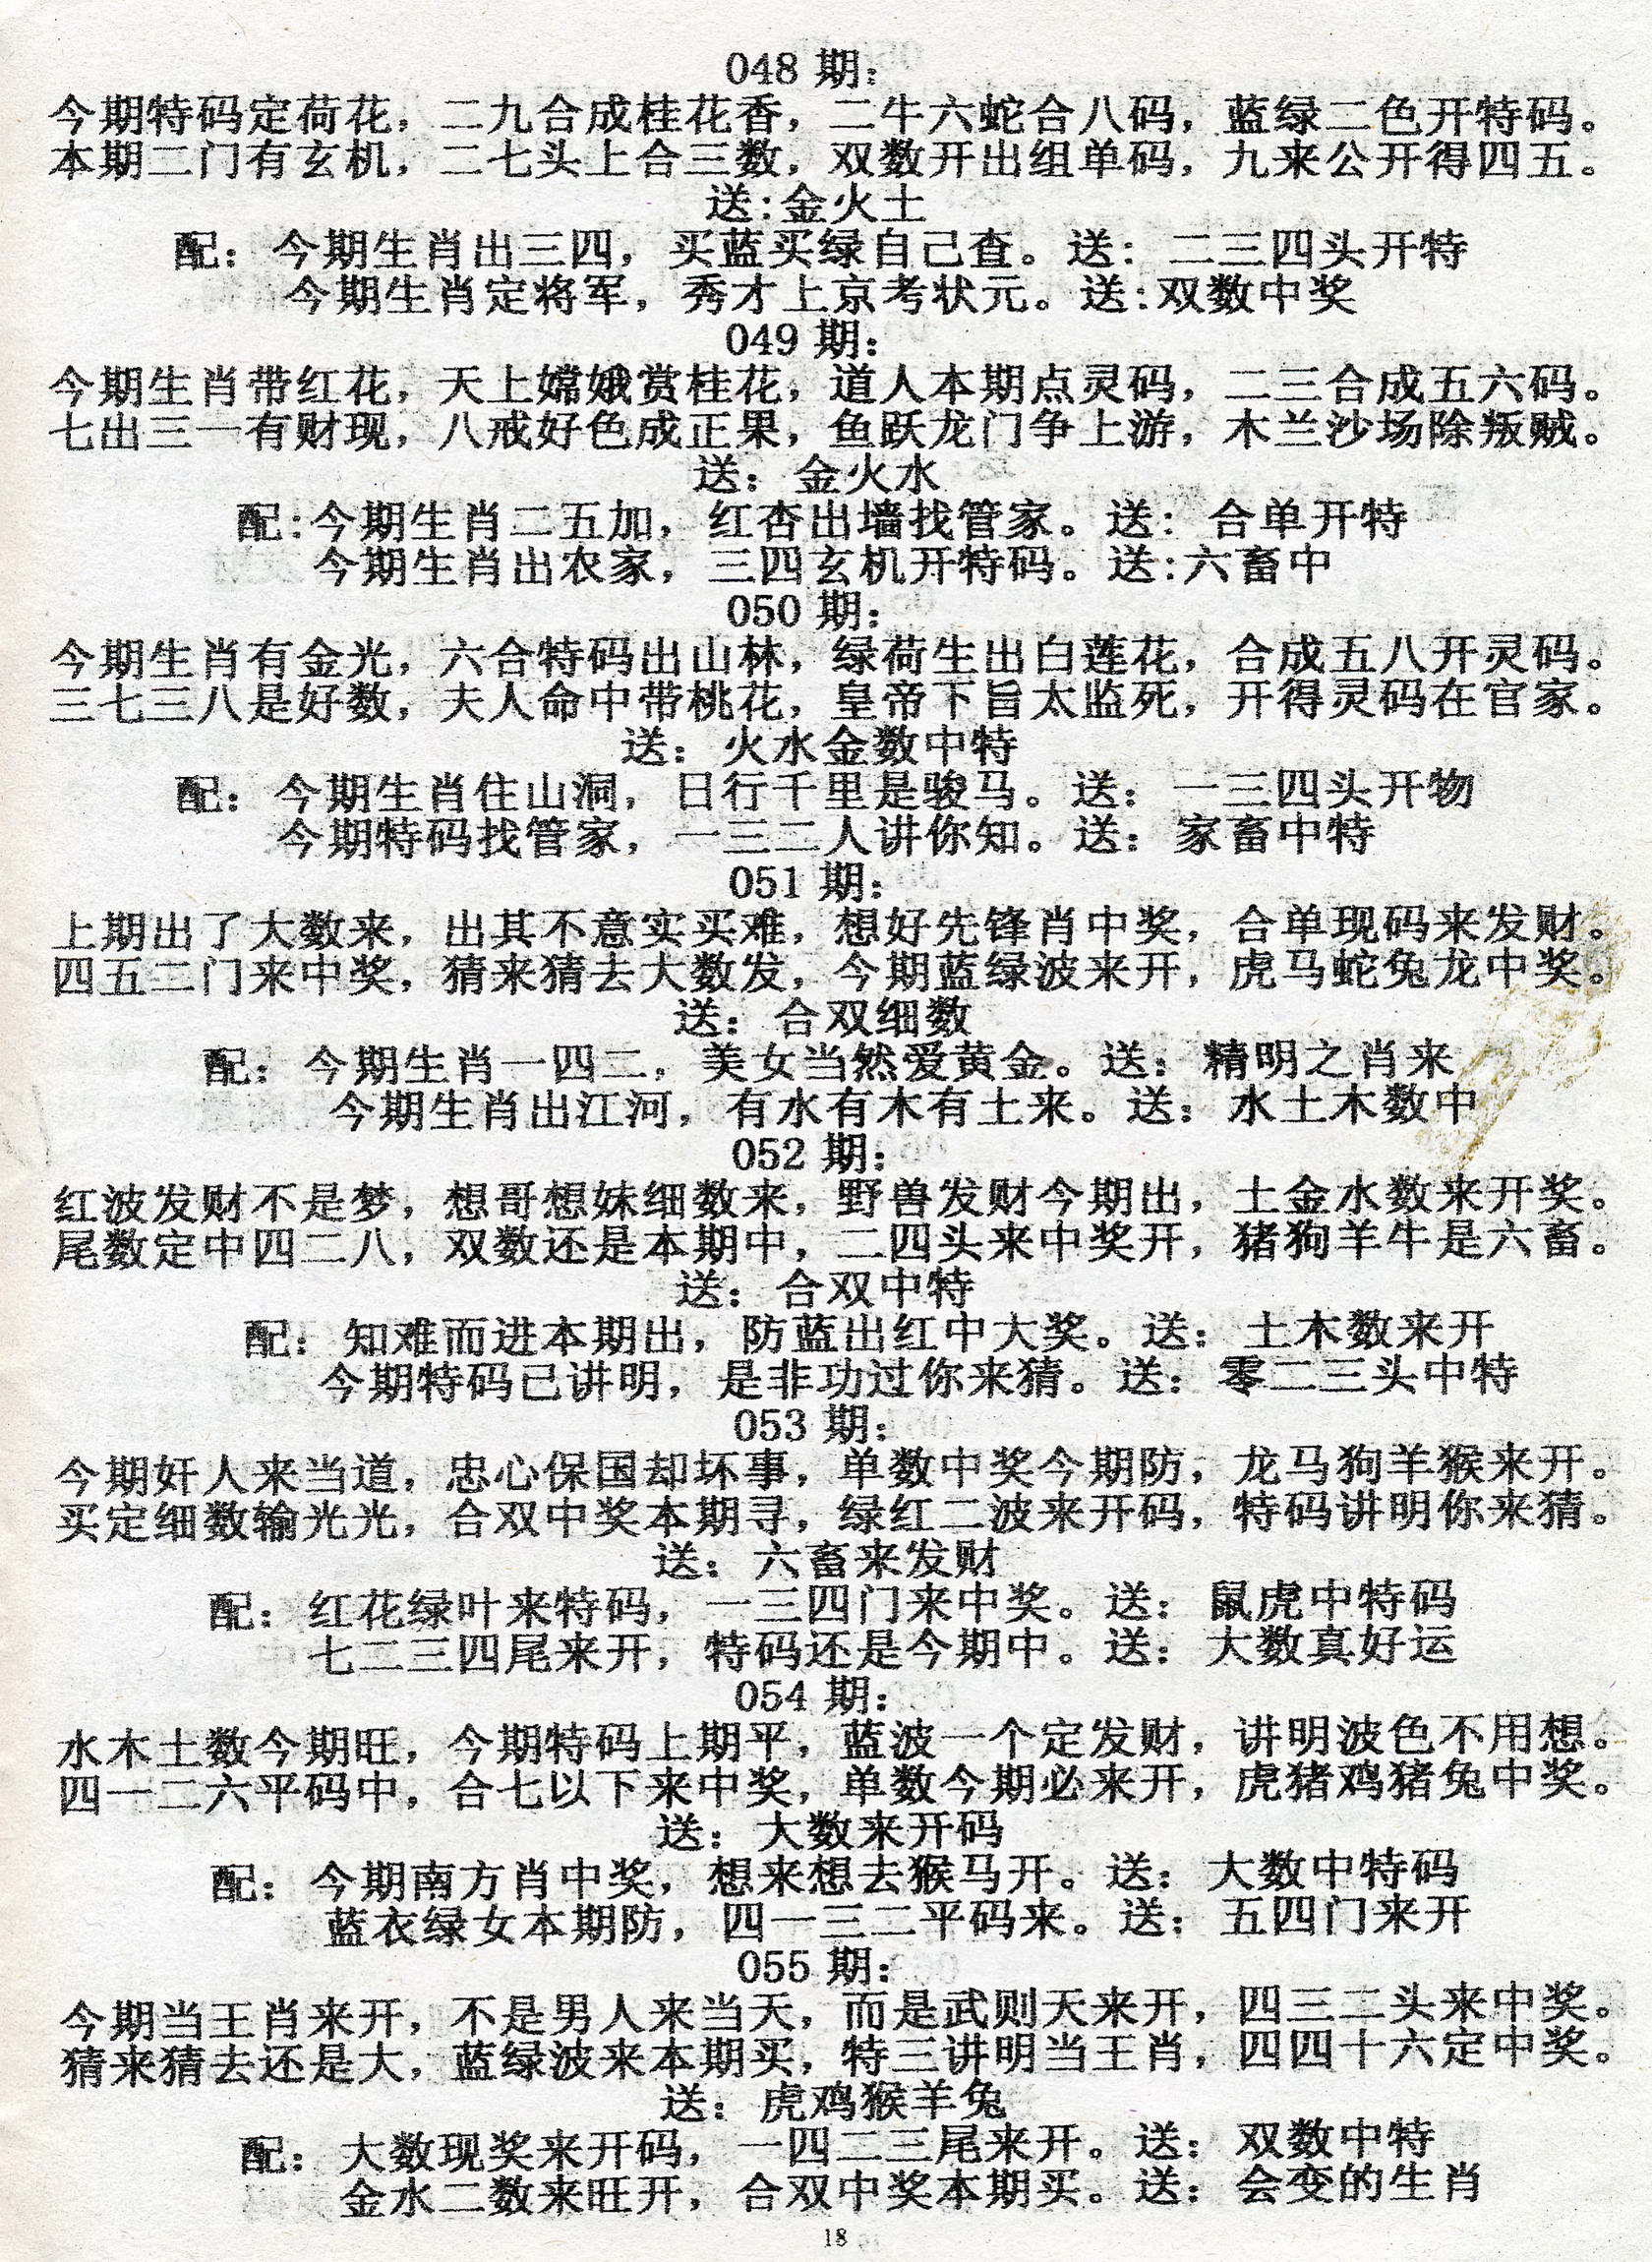 048 期：
今期特码定荷花，二九合成桂花香，二牛六蛇合八码，蓝绿二色开特码。
本期二门有玄机，二七头上合三数，双数开出组单码，九来公开得四五。
送:金火土
配：今期生肖出三四，买蓝买绿自己查。送：二三四头开特
今期生肖定将军，秀才上京考状元。送:双数中奖
049 期：
今期生肖带红花，天上嫦娥赏桂花，道人本期点灵码，二三合成五六码。
七出三一有财现，八戒好色成正果，鱼跃龙门争上游，木兰沙场除叛贼。
送：金火水
配:今期生肖二五加，红杏出墙找管家。送：合单开特
今期生肖出农家，三四玄机开特码。送:六畜中
050 期：
今期生肖有金光，六合特码出山林，绿荷生出白莲花，合成五八开灵码。
三七三八是好数，夫人命中带桃花，皇帝下旨太监死，开得灵码在官家。
送：火水金数中特
配：今期生肖住山洞，日行千里是骏马。送：一三四头开物
今期特码找管家，一三二人讲你知。送：家畜中特
051 期：
上期出了大数来，出其不意实买难，想好先锋肖中奖，合单现码来发财。
四五二门来中奖，猜来猜去大数发，今期蓝绿波来开，虎马蛇兔龙中奖。
送：合双细数
配：今期生肖一四二，美女当然爱黄金。送：精明之肖来
今期生肖出江河，有水有木有土来。送：水土木数中
052 期：
红波发财不是梦，想哥想妹细数来，野兽发财今期出，土金水数来开奖。
尾数定中四二八，双数还是本期中，二四头来中奖开，猪狗羊牛是六畜。
送：合双中特
配：知难而进本期出，防蓝出红中大奖。送：土木数来开
今期特码已讲明，是非功过你来猜。送：零二三头中特
053 期：
今期奸人来当道，忠心保国却坏事，单数中奖今期防，龙马狗羊猴来开。
买定细数输光光，合双中奖本期寻，绿红二波来开码，特码讲明你来猜。
送：六畜来发财
配：红花绿叶来特码，一三四门来中奖。送：鼠虎中特码
七二三四尾来开，特码还是今期中。送：大数真好运
054 期：
水木土数今期旺，今期特码上期平，蓝波一个定发财，讲明波色不用想。
四一二六平码中，合七以下来中奖，单数今期必来开，虎猪鸡猪兔中奖。
送：大数来开码
配：今期南方肖中奖，想来想去猴马开。送：大数中特码
蓝衣绿女本期防，四一三二平码来。送：五四门来开
055 期：
今期当王肖来开，不是男人来当天，而是武则天来开，四三二头来中奖。
猜来猜去还是大，蓝绿波来本期买，特三讲明当王肖，四四十六定中奖。
送：虎鸡猴羊兔
配：大数现奖来开码，一四二三尾来开。送：双数中特
金水二数来旺开，合双中奖本期买。送：会变的生肖
18